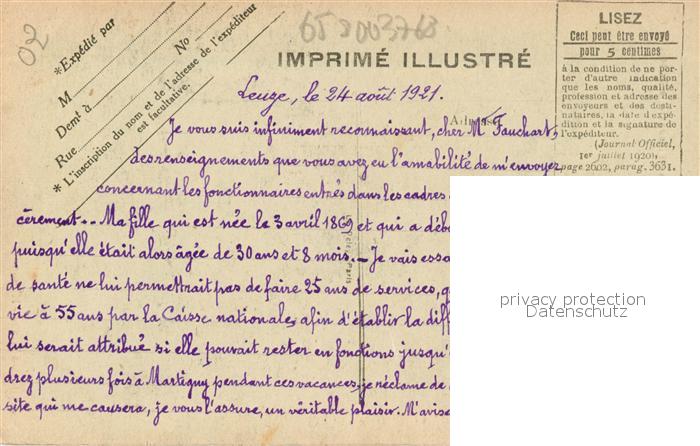 02
658003763
*Expédié par
M No
Demt à
Rue
* L'inscription du nom et de l'adresse de l'expéditeur
est facultative.
IMPRIMÉ ILLUSTRÉ
LISEZ
Ceci peut être envoyé
pour 5 centimes
à la condition de ne por-
ter d'autre indication
que les noms, qualité,
profession et adresse des
envoyeurs et des desti-
nataires, la date d'expé-
dition et la signature de
l'expéditeur.
(Journal Officiel,
1er juillet 1920)
page 2602, parag. 3631.
Leuze, le 24 août 1921.
Je vous suis infiniment reconnaissant, cher M. Fauchart,
des renseignements que vous avez eu l'amabilité de m'envoyez
concernant les fonctionnaires entrés dans les cadres
cèrement.. Ma fille qui est née le 3 avril 1869 et qui a débu
puisqu'elle était alors âgée de 30 ans et 8 mois. – Je vais essa
de santé ne lui permettrait pas de faire 25 ans de services, q
vie à 55 ans par la Caisse nationale, afin d'établir la diff
lui serait attribué si elle pouvait rester en fonctions jusqu'
drez plusieurs fois à Martigny pendant ces vacances, je réclame de
site qui me causera, je vous l'assure, un véritable plaisir. M'avise
privacy protection
Datenschutz